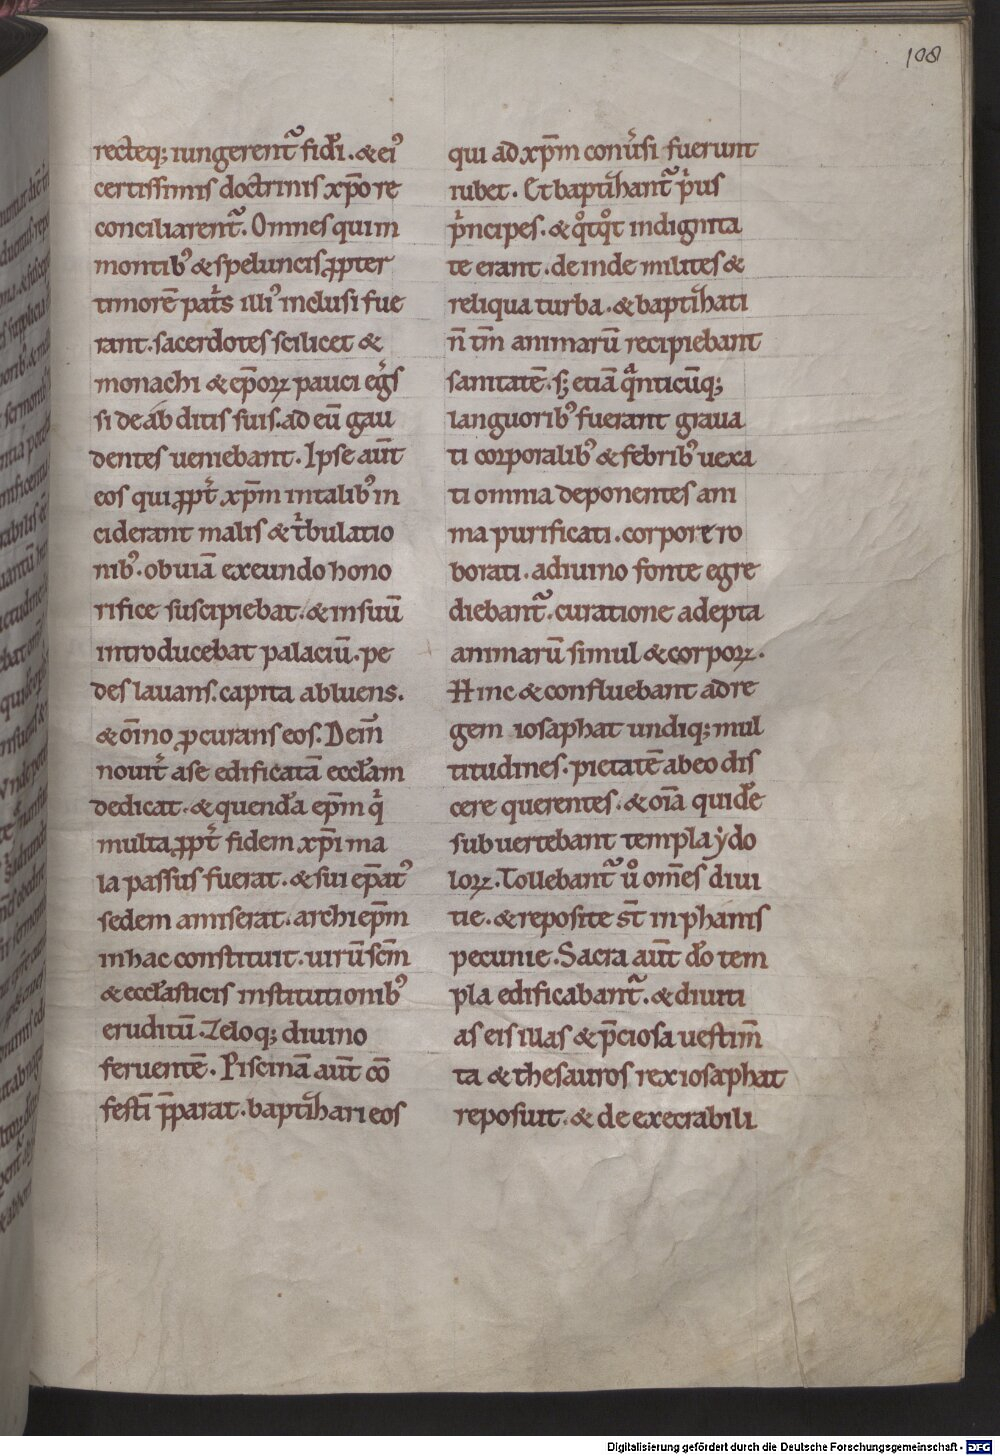 108
recteq; iungerent᷑ fidi. & ei᾽
certissimis doctrinis xp̄o re
conciliarent᷑. Omnes qui in
montib᾽ & speluncis ꝓpter
timorē pat̓s illi᾽ inclusi fue
rant. sacerdotes scilicet &
monachi & ep̄oꝝ pauci eg̓s
si de ab ditis suis. ad eū gau
dentes ueniebant. Ipse aūt
eos qui ꝓpt̓ xp̄m in talib᾽ in
ciderant malis & t̓bulatio
nib᾽. obuiā exeundo hono
rifice suscipiebat. & in suū
introducebat palaciū. pe
des lauans. capita abluens.
& om̄ino ꝓcurans eos. Dem̄
nouit̓ a se edificatā eccłam
dedicat. & quendā ep̄m q̓
multa ꝓpt̓ fidem xp̄i ma
la passus fuerat. & sui ep̄at᾽
sedem amiserat. archiep̄m
in hac constituit. uirū sc̄m
& eccłasticis institutionib᾽
eruditū. Zeloq; diuino
feruentē. Piscinā aūt cō
festī p̄parat. baptihari eos
qui ad xp̄m conu̓si fuerunt
iubet. Et baptihant᷑ p̓us
p̓ncipes. & qͦtqͦt indignita
te erant. de inde milites &
reliqua turba. & baptihati
n̄ tm̄ animarū recipiebant
sanitatē. s; etiā qᷓnticūq;
languorib᾽ fuerant graua
ti corporalib᾽ & febrib᾽ uexa
ti omnia deponentes ani
ma purificati. corpore ro
borati. a diuino fonte egre
diebant᷑. curatione adepta
animarū simul & corpoꝝ.
Hinc & confluebant ad re
gem iosaphat undiq; mul
titudines. pietatē ab eo dis
cere querentes. & oīa quidē
subuertebant templa ẏdo
loꝝ. Tollebant᷑ uͦ om̄es diui
tie. & reposite st̄ in phanis
pecunie. Sacra aūt dō tem
pla edificabant᷑. & diuiti
as eis illas & p̄ciosa uestim̄
ta & thesauros rex iosaphat
reposuit. & de execrabili
Digitalisierung gefördert durch die Deutsche Forschungsgemeinschaft - DFG